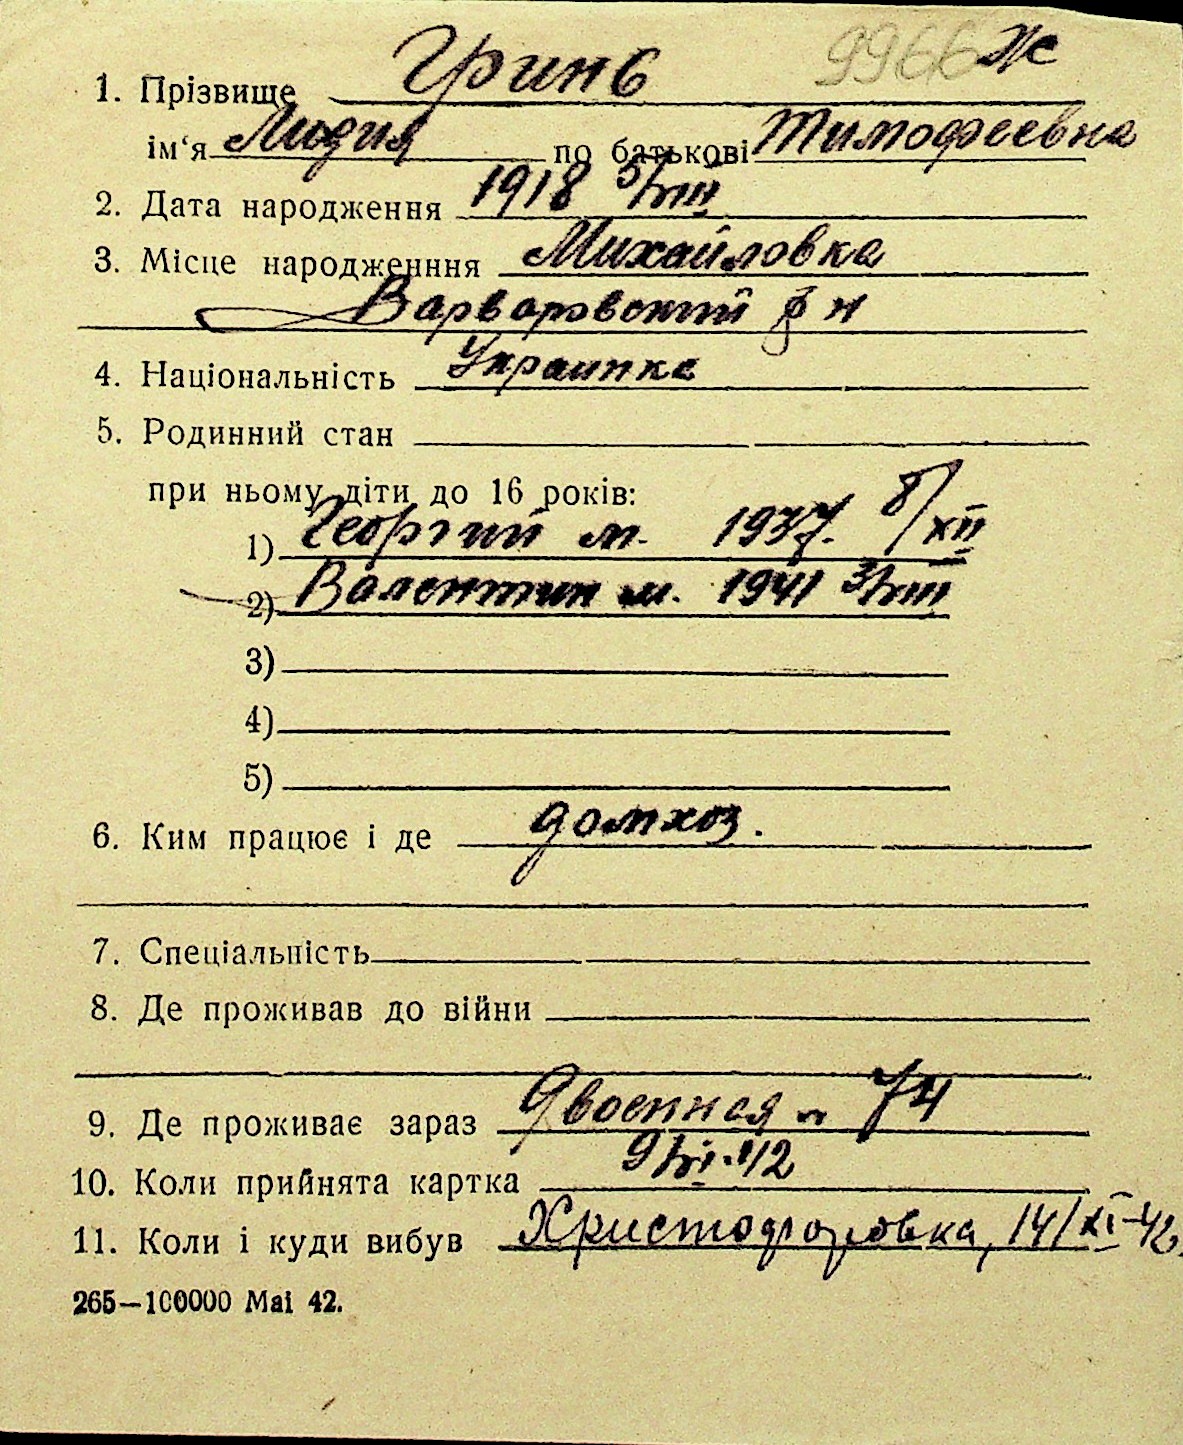 9966 Ж
1. Прізвище Гринь
ім‘я Лидия по батькові Тимофеевна
2. Дата народження 1918 5/VIII
3. Місце народженння Михайловка
Варваровский р н
4. Національність Украинка
5. Родинний стан
при ньому діти до 16 років:
1) Георгий м. 1937. 8/XII
2) Валентин м. 1941 3/VIII
3)
4)
5)
6. Ким працює і де домхоз.
7. Спеціальність
8. Де проживав до війни
9. Де проживає зараз 74
10. Коли прийнята картка 9/VI-42
11. Коли і куди вибув Христофоровка, 14/XI-42.
265—100000 Mai 42.